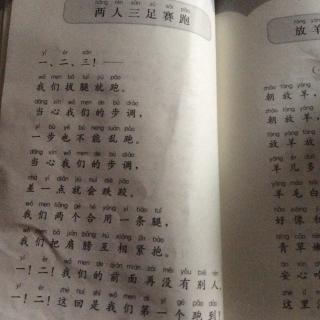 liǎng rén sān zú sài pǎo
两人三足赛跑
yī èr sān
一、二、三！——
wǒ men bá tuǐ jiù pǎo
我们拔腿就跑。
dāng xīn wǒ men de bù diào
当心我们的步调，
yí bù yě bù néng luàn pǎo
一步也不能乱跑。
dāng xīn wǒ men de bù diào
当心我们的步调，
chà yì diǎn jiù huì diē jiāo
差一点就会跌跤，
wǒ men liǎng gè hé yòng yì tiáo tuǐ
我们两个合用一条腿，
wǒ men bǎ jiān bǎng hù xiāng jǐn bào
我们把肩膀互相紧抱。
yī èr wǒ men de qián miàn zài méi yǒu bié rén
一！二！我们的前面再没有别人，
yī èr zhè huí shì wǒ men dì yī gè pǎo dào
一！二！这回是我们第一个跑到！
放羊
朝放羊，
朝放羊，
羊儿多
羊毛白
好像
青草
安心
这里